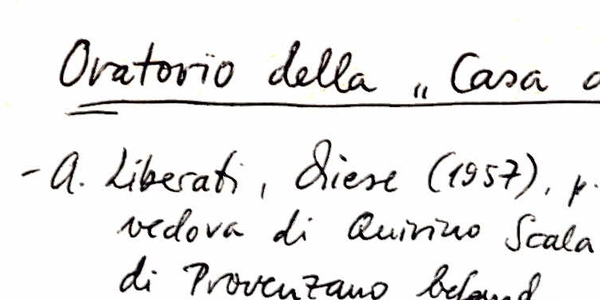 Oratorio della „ Casa d
- A. Liberati, Chiese (1957), p.
vedova di Quirino Scala
di Provenzano befand